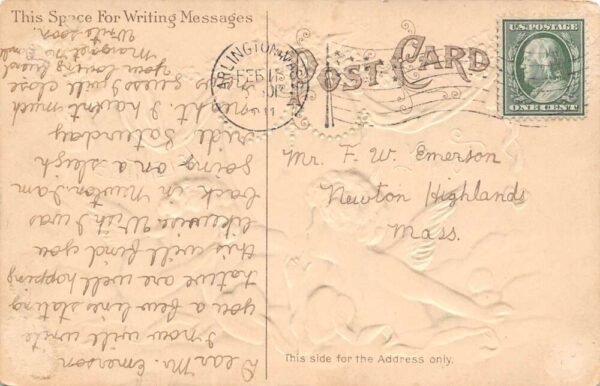 This Space For Writing Messages
POST CARD
ARLINGTON
FEB
U.S. POSTAGE
ONE CENT
Mr. F. W. Emerson
Newton Highlands
Mass.
This side for the Address only.
Dear Mr. Emerson
I now will write
you a few lines stating
that we are well hoping
this will find you
likewise Wish I was
back in Newton. I am
going on a sleigh
ride Saturday
night. I havent much
guess I will close
your loving friend
Margaret
Write soon